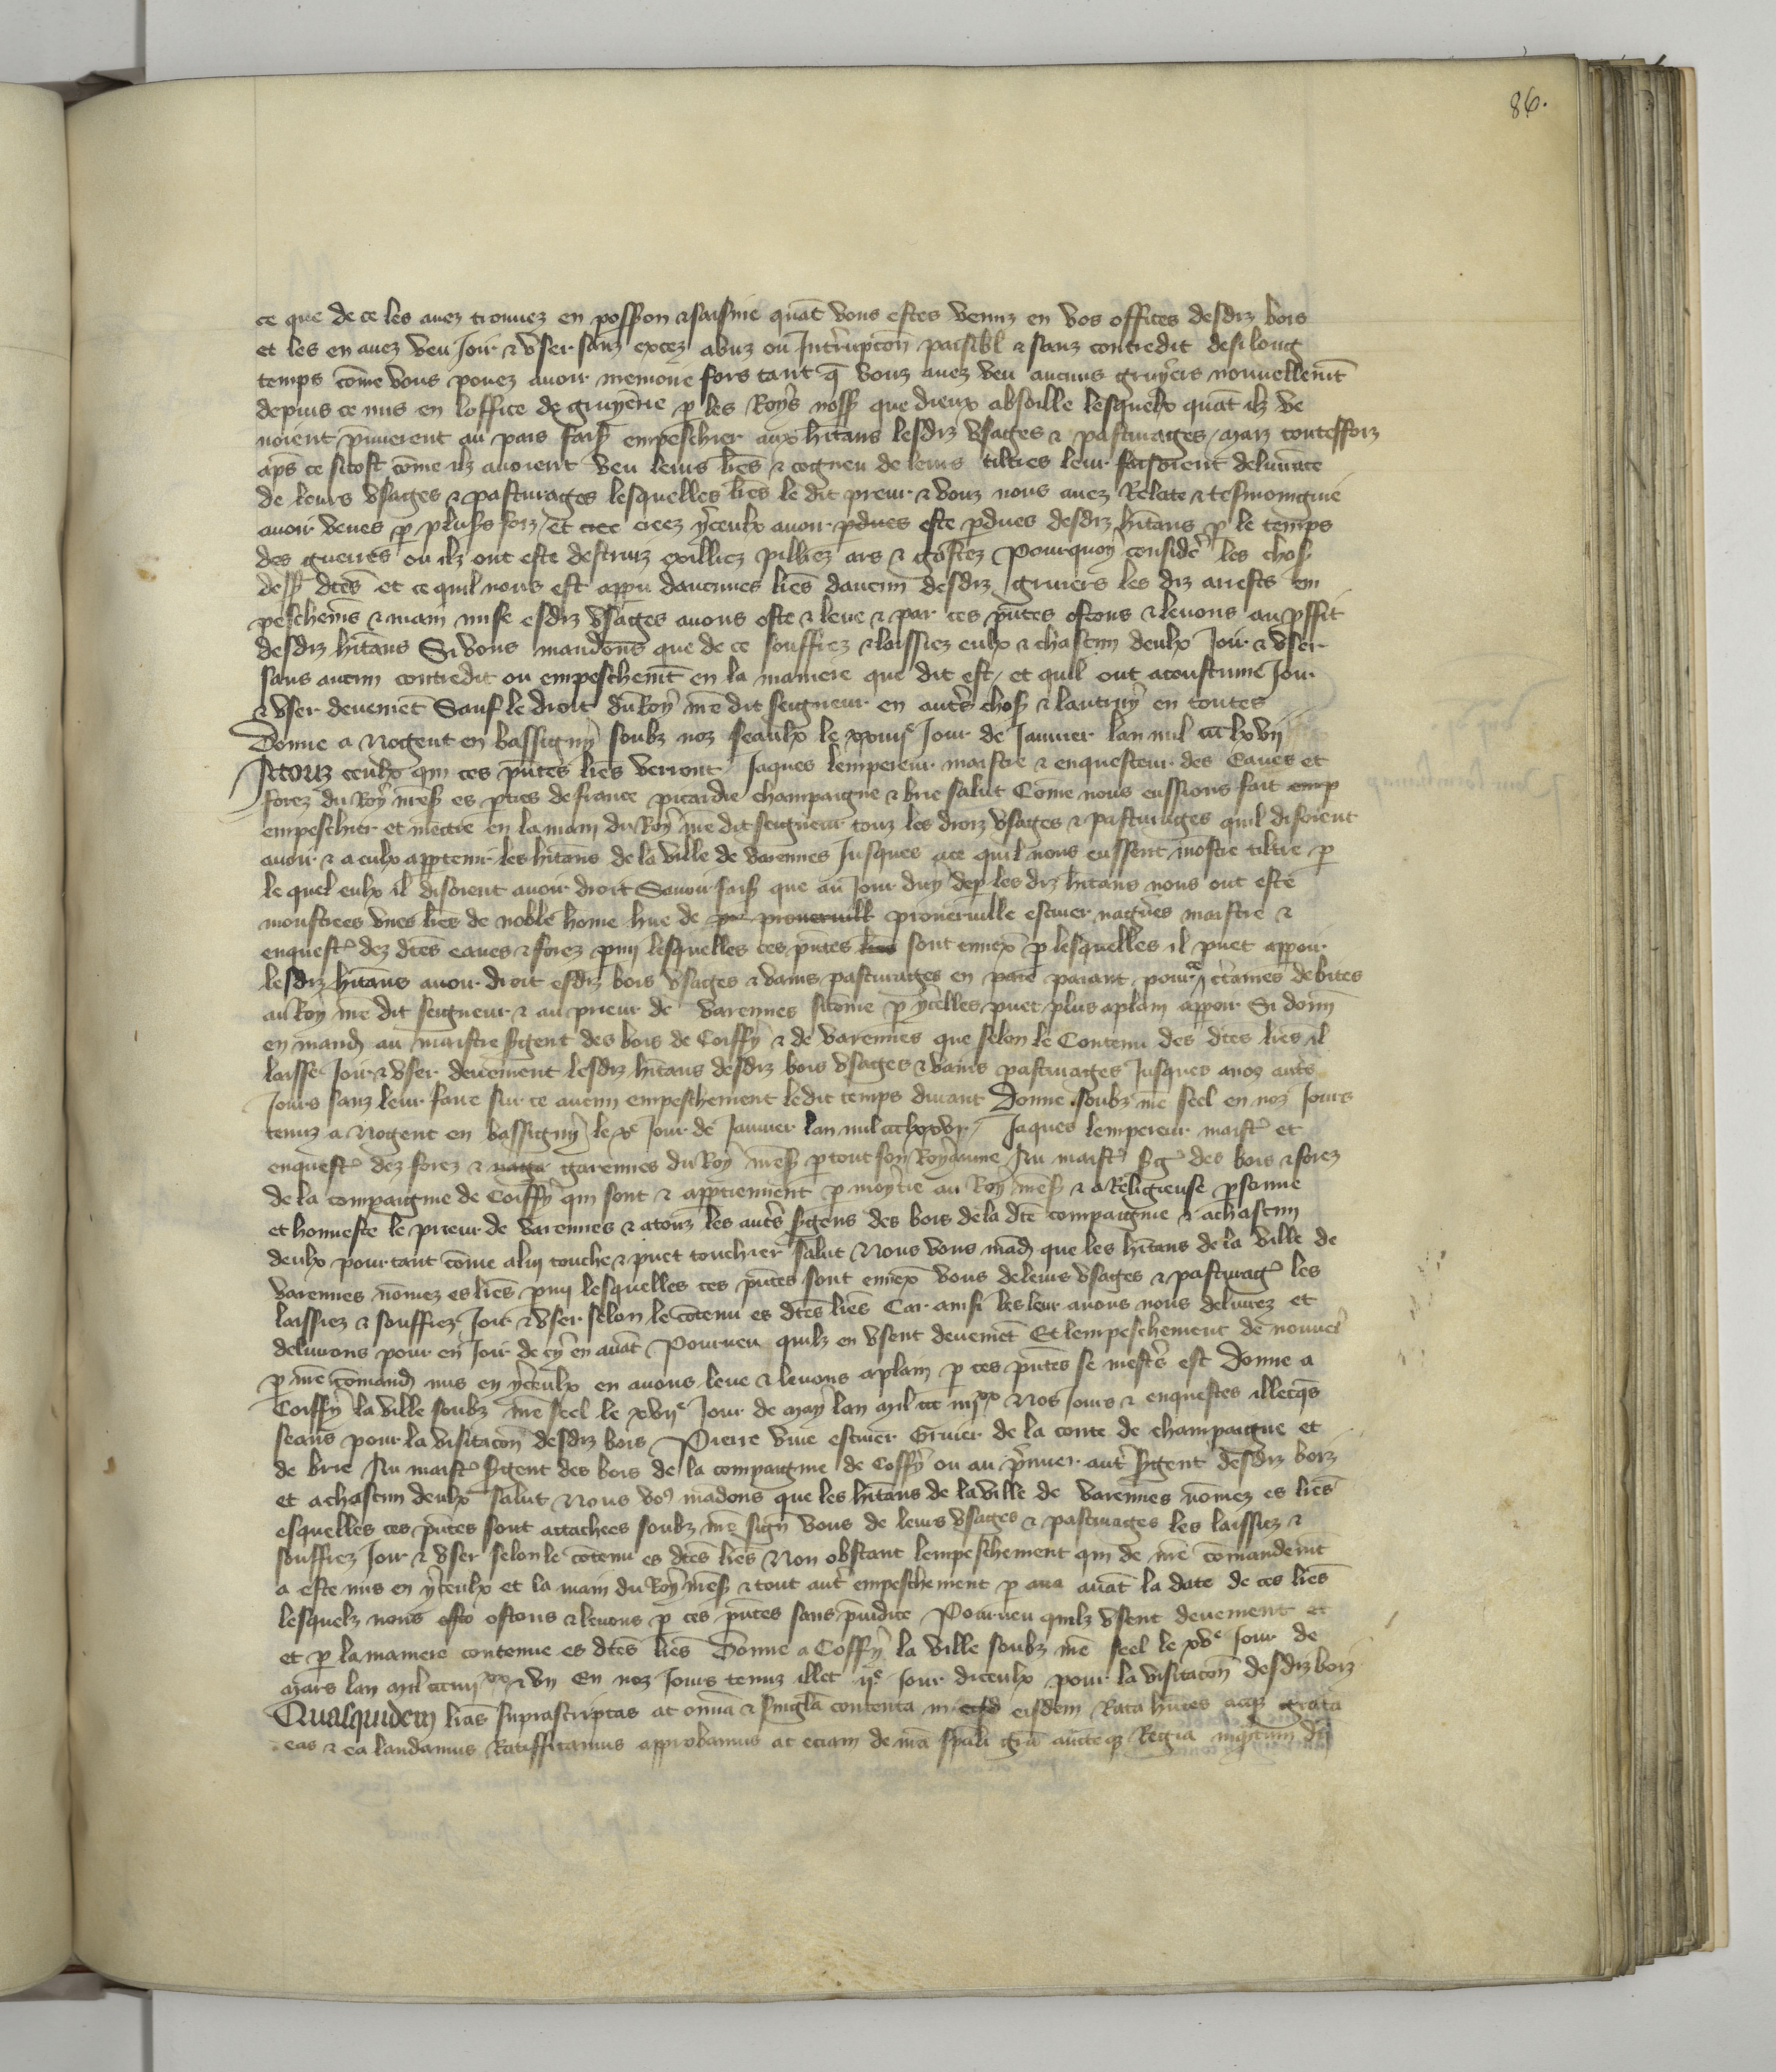 86.
ce que de ce les avez trouvez en possion & saisine quāt vous estes venuz en vos offices desdiz bois
et les en avez veu Joir & user sanz excez abuz ou Intrupcōn paisibl & sanz contredit desi long
temps cōme vous povez avoir memoire fors tant q̄ vouz avez veu aucuns gruyers nouvellemt̄
depuis ce mis en loffice de gruyerie p les Roys noss que dieux absoille lesquelx quāt ilz ve
noient pm̄ierent au pais fais empeschier aux hītans lesdiz usages & pasturages / maiz toutefforz
aps ce sitost cōme ilz avoient veu leurs lres & cogneu de leurs tiltres leur faisoient delivrāce
de leurs usages & pasturages lesquelles lres le dit preur & vouz nous avez Relate & tesmoingnie
avoir veues p plusrs foiz / et cree creez yceulx avoir pdues este pdues desdiz hītans p le temps
des guerres ou ilz ont este destruiz exilliez pilliez ars & gastez Pourquoy considere les chos
dess dtes et ce quil nous est appu daucunes lres daucun desdiz gruiers les diz arrests em
peschemēs & main mise esdiz usages avons oste & leve & par ces pn̄tes ostons & levons au pffit
desdiz hītans Si vous mandons que de ce souffrez & laissiez eulx & chascun deulx Joir & user
sans aucun contredit ou empeschemt̄ en la maniere que dit est / et quil ont acoustume Joir
& user deuemēt Sauf le droit du Roy mē dit seigneur en autrs chos & lautruy en toutes
Donne a Nogent en bassigny soubz noz seaulx le xxiiiie Jour de Janvier lan mil ccc lxvii
A touz ceulx qui ces pn̄tes lres verront / Jaques lempereur maistre & enquesteur des Eaues et
forez du Roy mess es pties de france picardie champaigne & brie salut Cōme nous eussions fait emp
empeschier et mettre en la main du Roy mē dit seigneur touz les droiz usages & pasturages quil disoient
avoir & a eulx apptenir les hītans de la ville de varennes Jusques ace quil nous eussent mōstre tiltre p
le quel eulx il disoient avoir droit Savoir fais que au Jour duy dep les diz hītans nous ont este
monstrees unes lres de noble home hue de prouverville escuier nagrs maistre &
enquestr dez dtes eaues & forez pmy lesquelles ces pn̄tes sont ennex p lesquelles il puet apparoir
lesdiz hītans avoir droit esdiz bois usages & vains pasturages en paiant pour ce ctaines debites
au Roy mē dit seigneur & au prieur de varennes sicōme p ycelles puet plus aplain apparoir Si donn̄
en mand au maistre sgent des bois de Coiffy & de varennes que selon le Contenu des dtes lres il
laisse Joir & user deuement lesdiz hītans desdiz bois usages & vains pasturages Jusques a noz autrs
Jours sanz leur faire sur ce aucun empeschement ledit temps durant Donne soubz mē seel en noz Jours
tenuz a Nogent en bassigny le xe Jour de Janvier lan mil ccc lxxvi / Jaques lempereur maistr et
enquestr dez forez & garennes du Roy mess p tout son Royaume Au maistr sgt des bois & forez
de la compaignie de Coiffy qui sont & apptiennent p moytie au Roy mess & a Religieuse psonne
et honneste le prieur de varennes & a touz les autrs sgens des bois de la dte compaignie & a chascun
deulx pour tant cōme aluy touche & puet touchier salut Nous vous mād que les hītans de la ville de
varennes nōmez es lres pmy lesquelles ces pn̄tes sont ennex vous de leurs usages & pasturags les
laissiez & souffrez Joir & user selon le cōtenu es dtes lres Car ainsi les leur avons nous delivrez et
delivrons pour en Joir de cy en avāt Pourveu quilz en usent deuemēt Et lempeschement de nouvel
p mē cōmand mis en yceulx en avons leve & levons aplain p ces pn̄tes se mestrs est Donne a
Coiffy la ville soubz mē seel le xviie Jour de may lan mil ccc iiiixx & Nos Jours & enquestes illecqs
seans pour la visitacōn desdiz bois Pierre vive escuier Gruier de la conte de champaigne et
de brie Au maistr sgent des bois de la compaignie de Coffy ou au pmier autr sgent desdiz boiz
et a chascun deulx salut Nous vo9 mādons que les hītans de la ville de varennes nōmez es lres
esquelles ces pn̄tes sont attachees soubz mē sign̄ vous de leurs usages & pasturages les laissiez &
souffrez Joir & user selon le cōtenu es dtes lres Non obstant lempeschement qui de mē cōmandemt̄
a este mis en yceulx et la main du Roy mess & tout autr empeschement p ava avāt la date de ces lres
lesquelz nous osto ostons & levons p ces pn̄tes sans pīudice Pourveu quilz usent deuement et
et p la maniere contenue es dtes lres Donne a Coffy la ville soubz mē seel le xve Jour de
mars lan mil ccc iiiixx & vii En noz Jours tenuz illec iie Jour diceulx pour la visitacōn desdiz boiz
Quasquidem lras suprascriptas ac om̄ia & singla contenta in eisd eisdem Rata hn̄tes atqz grata
eas & ea laudamus Ratifficamus approbamus ac eciam de nrā spāli grā auctteqz Regia